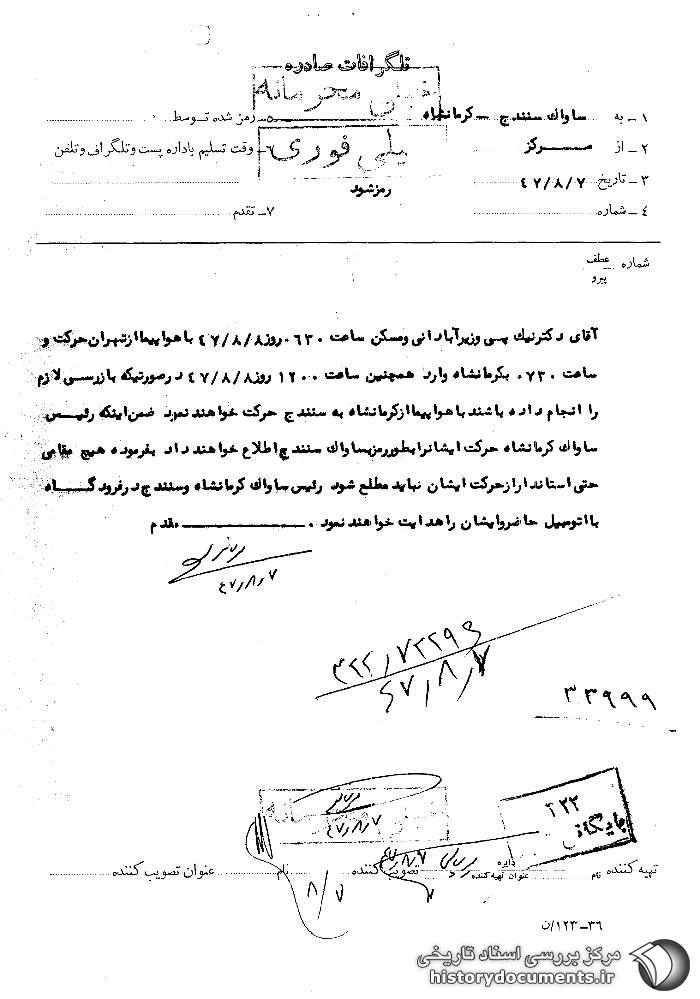 تلگرافات صادره
خیلی محرمانه
۱ـ به ساواك سنندج ـ كرمانشاه
۵ـ رمز شده توسط
۲ـ از مركز
۶ـ وقت تسلیم باداره پست و تلگراف و تلفن
یلی فوری
۳ـ تاریخ ۴۷/۸/۷
رمزشود
۴ـ شماره
۷ـ تقدم
شماره عطف
پیرو
آقای دكترنیك پی وزیرآبادانی ومسكن ساعت ۰۶۳۰ روز ۴۷/۸/۸ با هواپیما از تهران حركت و
ساعت ۰۷۳۰ بكرمانشاه وارد همچنین ساعت ۱۲۰۰ روز ۴۷/۸/۸ در صورتیكه بازرسی لازم
را انجام داده باشند با هواپیما ازكرمانشاه به سنندج حركت خواهند نمود ضمن اینكه رئیس
ساواك كرمانشاه حركت ایشانرا بطور رمز بساواك سنندج اطلاع خواهند داد بفرموده هیچ مقامی
حتی استاندار از حركت ایشان نباید مطلع شود رئیس ساواك كرمانشاه وسنندج در فرودگاه
با اتومبیل حاضر وایشان را هدایت خواهند نمود . مقدم
۴۷٫۸٫۷
۳۲۲٫۷۲۲۹۶
۴۷٫۸٫۷
۳۳۹۹۹
۳۲۲
بایگانی
۴۷٫۸٫۷
۴۷٫۸٫۷
تهیه كننده نام دایره
عنوان تهیه كننده
تصویب كننده نام عنوان تصویب كننده
۸/۷
۳۶ـ۱۲۳/ن
مركز بررسی اسناد تاریخی
historydocuments.ir